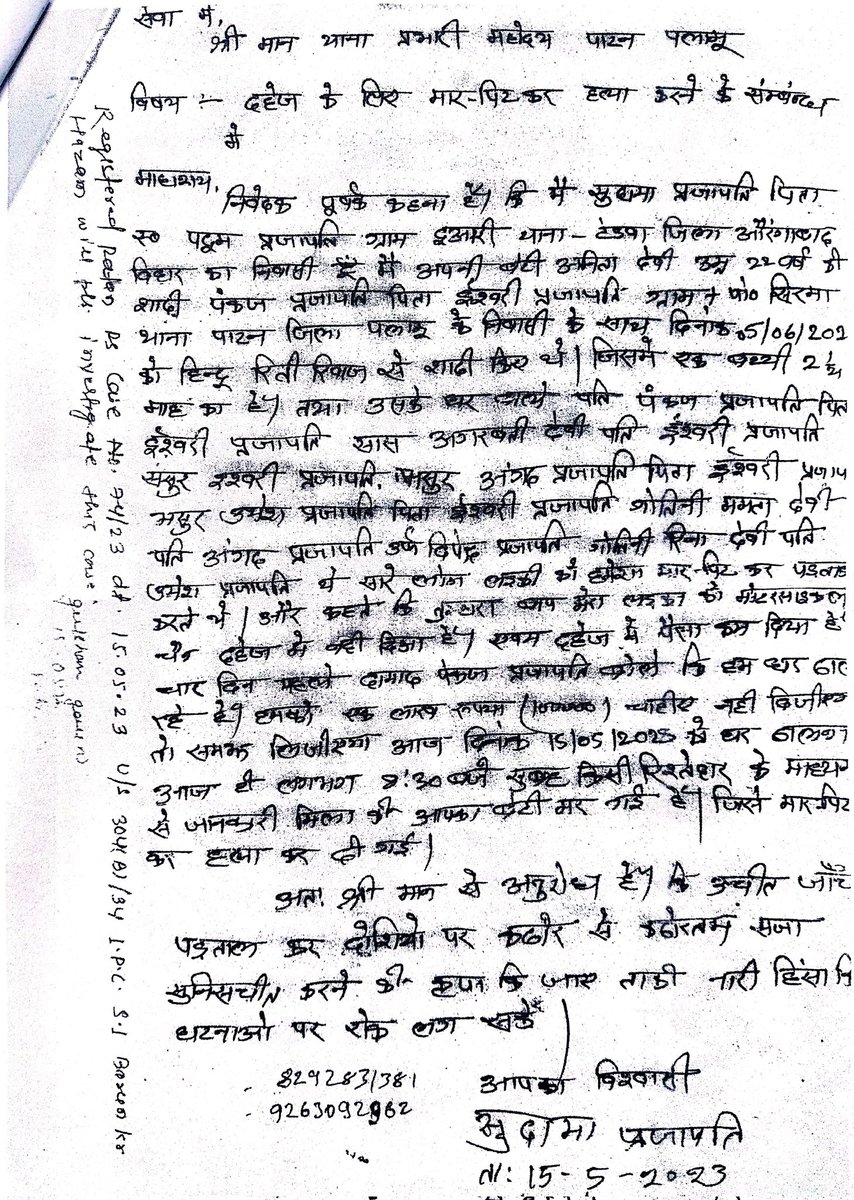 सेवा में,
श्री मान थाना प्रभारी महोदय पाटन पलामू
विषय :- दहेज के लिए मार-पिट कर हत्या करने के संम्बन्ध
में
माहाशय,
निवेदक पूर्वक कहना है। कि मै सुदामा प्रजापति पिता
स्व पदुम प्रजापति ग्राम इआरी थाना - टंडवा जिला औरंगाबाद
बिहार का निवासी हूँ मै अपनी बेटी अनिता देवी उम्र 22 वर्ष की
शादी पंकज प्रजापति पिता ईश्वरी प्रजापति ग्राम + पो० सिरमा
थाना पाटन जिला पलामू के निवासी के साथ दिनांक 05/06/202
को हिन्दू रिती रिवाज से शादी किए थे। जिसमे एक बच्ची 2½
माह का है। तथा उसके घर वाले पति पंकज प्रजापति पिता
ईश्वरी प्रजापति सास अगरबती देवी पति ईश्वरी प्रजापति
ससुर ईश्वरी प्रजापति, भसुर अंगद प्रजापति पिता ईश्वरी प्रजाप
भसुर उमेश प्रजापति पिता ईश्वरी प्रजापति गोतिनी ममता देवी
पति अंगद प्रजापति उर्फ दिपेन्द्र प्रजापति गोतिनी रिना देवी पति
उमेश प्रजापति ये सारे लोग लड़की को हमेशा मार-पिट कर
करते थे। और कहते कि तुम्हारा बाप मेरा लड़का को मोटरसाइकल
चैन दहेज मे नही दिआ है। एवम दहेज मे पैसा कम दिया है
चार दिन पहले दामाद पंकज प्रजापति बोले कि हम घर ढाल
रहे है। हमको एक लाख रुपया (100000) चाहीए नही दिजीएगा
तो समझ लिजीएगा आज दिनांक 15/05/2023 को घर ढालना
आज ही लगभग 8:30 बजे सुबह किसी रिश्तेदार के माध्यम
से जानकारी मिला की आपका बेटी मर गई है। जिसे मार-पिट
कर हत्या कर दी गई।
अतः श्री मान से अनुरोध है। कि उचीत जाँच
पड़ताल कर दोशियो पर कठोर से कठोरतम सजा
सुनिसचीत करने की कृपा कि जाए ताकी नारी हिंसा कि
घटनाओ पर रोक लग सकें।
8292831381
9263092962
आपका विश्वासी
सुदामा प्रजापति
ता: 15-5-2023
Registered Patan PS Case No. 74/23 dt. 15.05.23 U/S 304(B)/34 I.P.C. S.I Barun kr
Hazam will pls investigate this case.